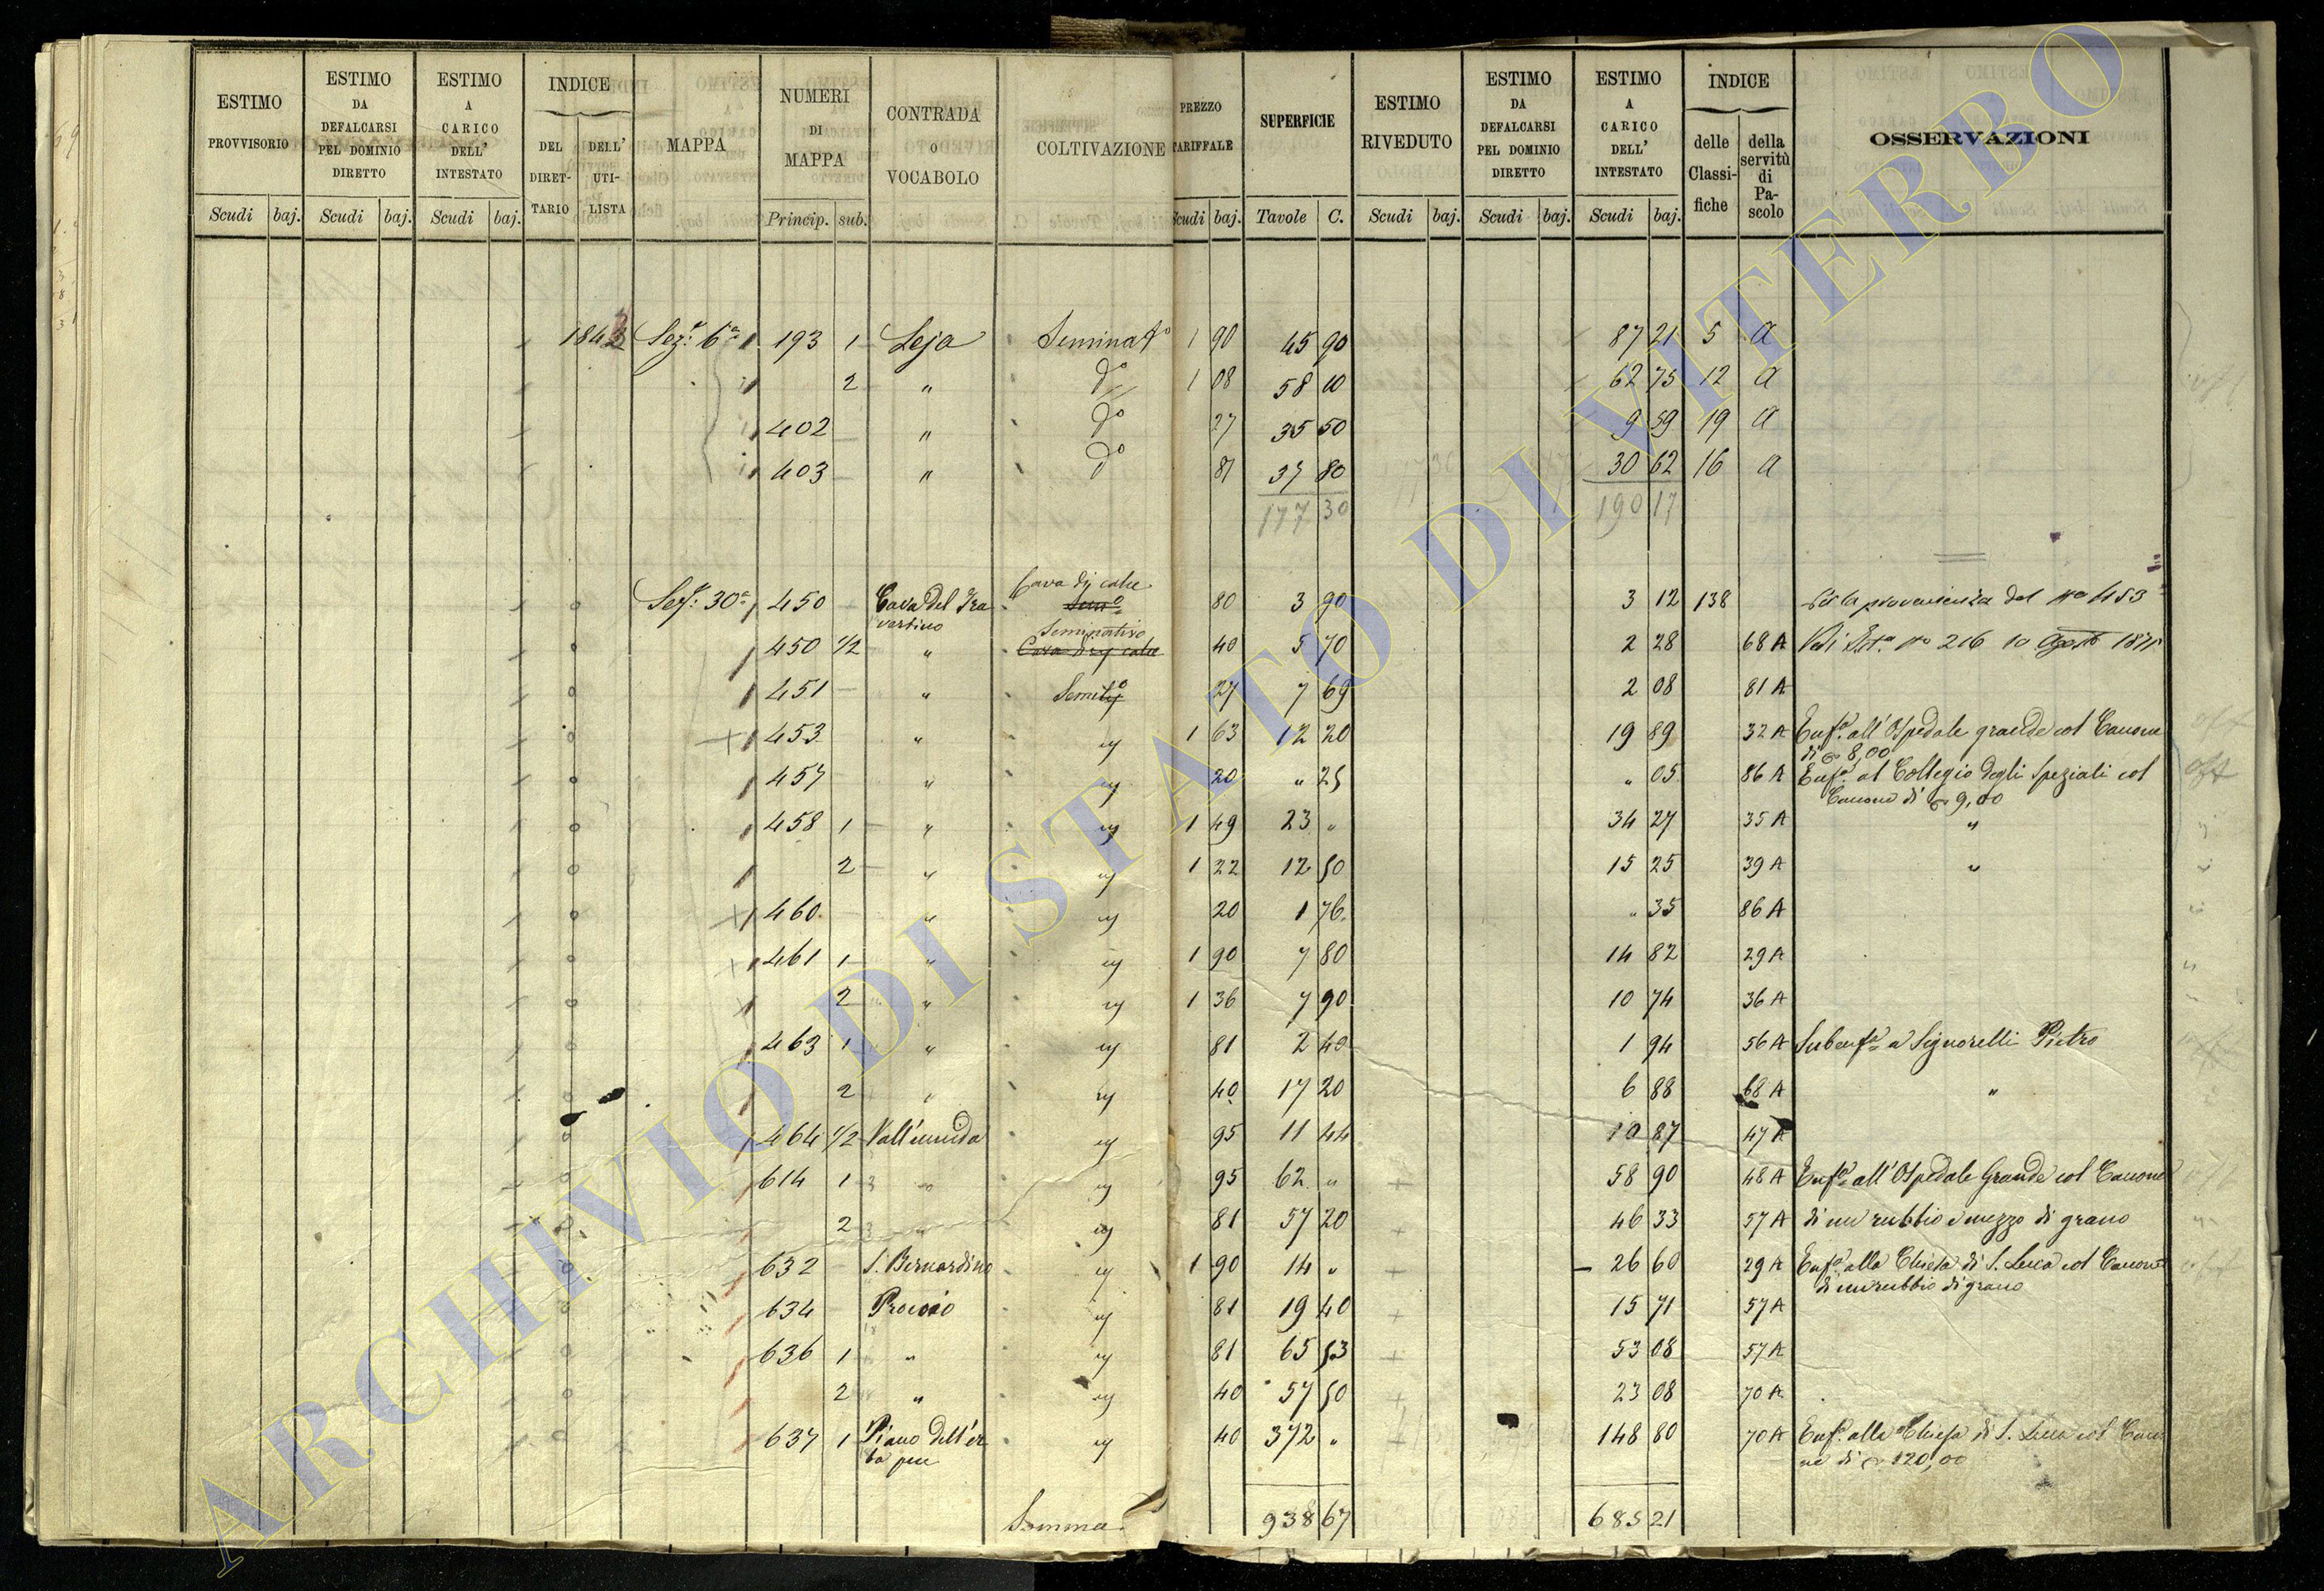 ESTIMO PROVVISORIO | ESTIMO DA DEFALCARSI PEL DOMINIO DIRETTO | ESTIMO A CARICO DELL' INTESTATO | INDICE DEL DIRETTARIO | DELL' UTILISTA | MAPPA | NUMERI DI MAPPA | CONTRADA O VOCABOLO | COLTIVAZIONE | PREZZO TARIFFALE | SUPERFICIE | ESTIMO RIVEDUTO | ESTIMO DA DEFALCARSI PEL DOMINIO DIRETTO | ESTIMO A CARICO DELL' INTESTATO | INDICE delle Classifiche | della servitù di Pascolo | OSSERVAZIONI
Scudi baj. Scudi baj. Scudi baj. Princip. sub. Scudi baj. Tavole C. Scudi baj. Scudi baj. Scudi baj.
184 Sez: 6a 193 1 Leja Seminato 1 90 45 90 87 21 5 a
2 " do 1 08 58 10 62 75 12 a
402 " do 27 35 50 9 59 19 a
403 " do 81 37 80 30 62 16 a
177 30 190 17
Cava di calce
Sez: 30a 450 Cava del Travertino Semo 80 3 90 3 12 138 provenienza del no 453
Seminativo
450 1/2 " Cava di calce 40 5 70 2 28 68 A Vedi no 216 10 Agosto 1871
451 " 27 7 69 2 08 81 A
453 " " 1 63 12 20 19 89 32 A Enfa. all' Ospedale grande col Canone
di 8,00
457 " " 20 " 25 " 05 86 A Enfa. al Collegio degli Speziali col
Canone di 9,00
458 1 " " 1 49 23 " 34 27 35 A "
2 " " 1 22 12 50 15 25 39 A "
460 " " 20 1 76 " 35 86 A
461 1 " " 1 90 7 80 14 82 29 A
2 " " 1 36 7 90 10 74 36 A
463 1 " " 81 2 40 1 94 56 A Subenfa a Signorelli Pietro
2 " " 40 17 20 6 88 68 A "
464 1/2 Vall'umida " 95 11 44 10 87 47 A
614 1 " " 95 62 " 58 90 48 A Enfa all' Ospedale Grande col Canone
2 " " 81 57 20 46 33 57 A di un rubbio e mezzo di grano
632 S. Bernardino " 1 90 14 " 26 60 29 A Enfa. alla Chiesa di S. Luca col Canone
di un rubbio di grano
634 " 81 19 40 15 71 57 A
636 1 " " 81 65 53 53 08 57 A
2 " " 40 57 50 23 08 70 A
637 1 Piano dell'er " 40 372 " 148 80 70 A Enfa. alla Chiesa di S. Luca col Cano
ne di 120,00
Somma 938 67 685 21
ARCHIVIO DI STATO DI VITERBO